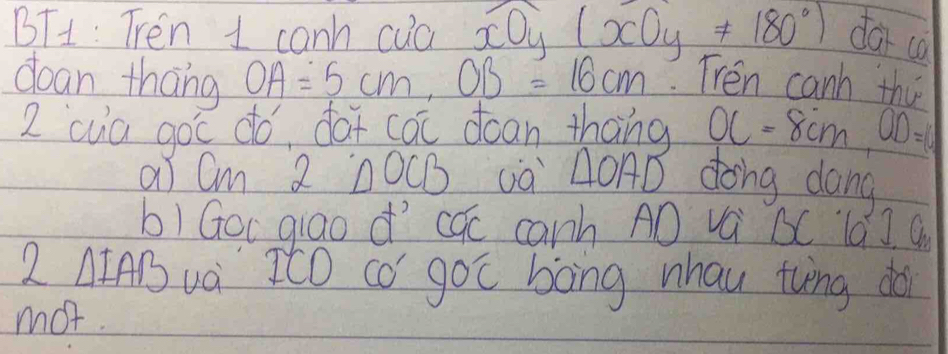 BT1: Trên 1 cạnh của xOy (xOy ≠ 180°) đặt cá
đoạn thẳng OA = 5 cm, OB = 16cm. Trên cạnh thứ
2 của góc đó, đặt các đoạn thẳng OC = 8cm, OD =
a) Cm 2 ΔOCB và ΔOAD đồng dạng
b) Gọi giao đ' các cạnh AD và BC là I. Cm
2 ΔIAB và ICD có góc bằng nhau từng đôi
một.